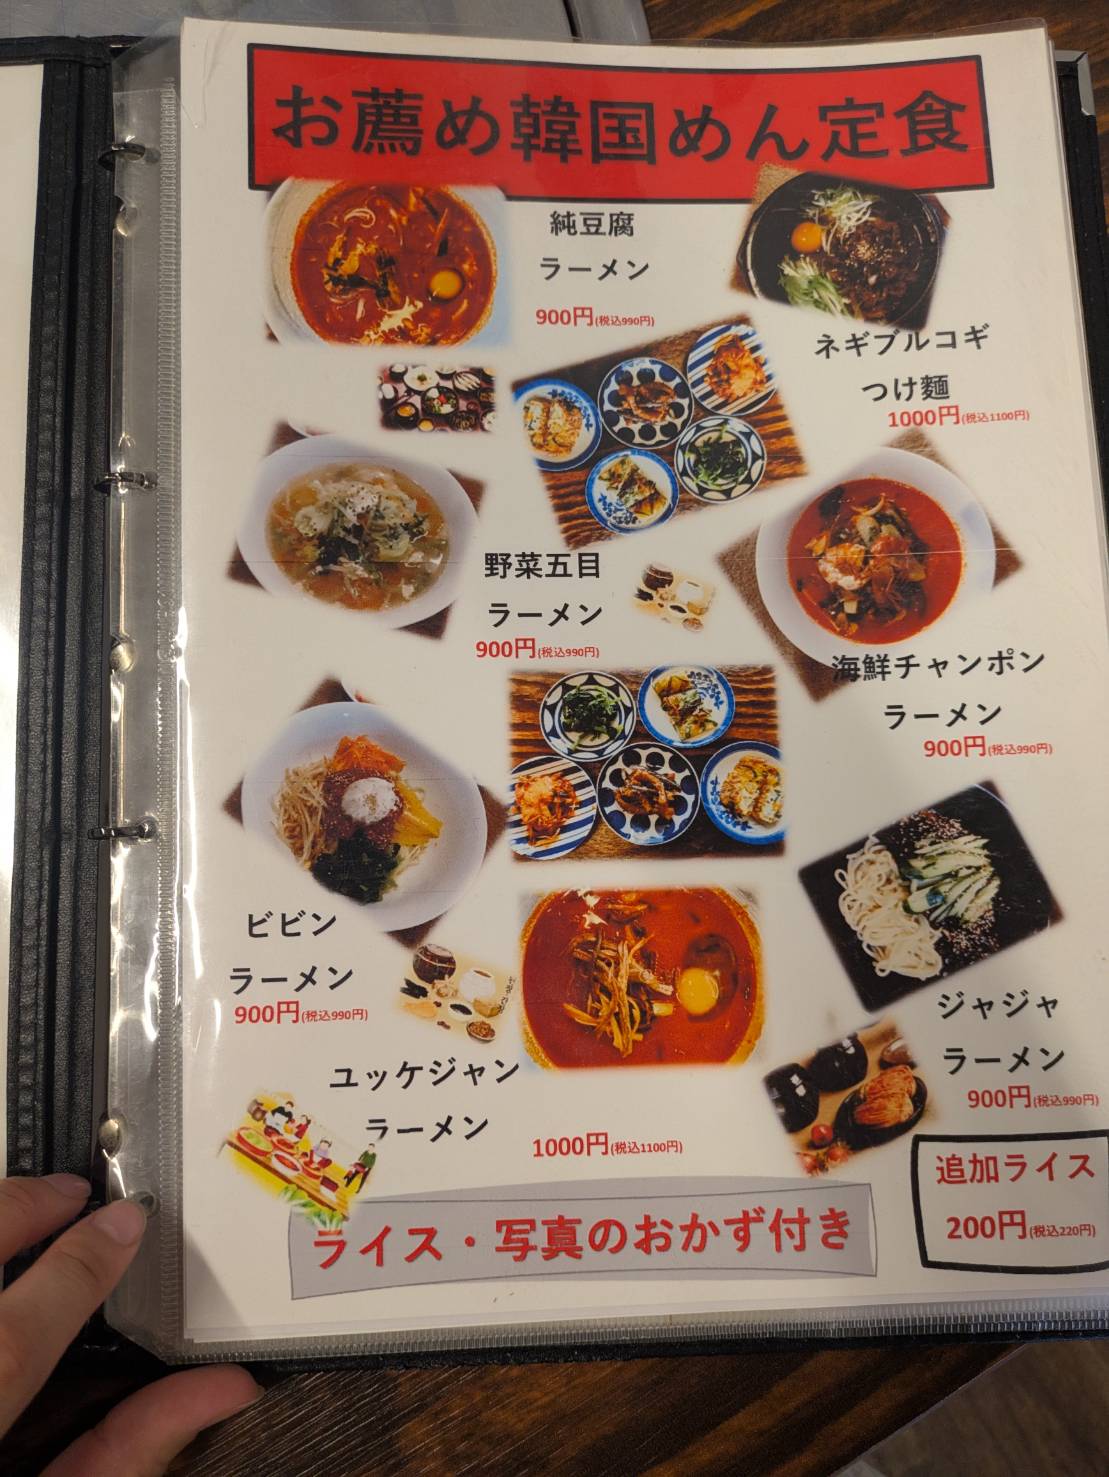 お薦め韓国めん定食
純豆腐
ラーメン
900円(税込990円)
ネギブルコギ
つけ麵
1000円(税込1100円)
野菜五目
ラーメン
900円(税込990円)
海鮮チャンポン
ラーメン
900円(税込990円)
ビビン
ラーメン
900円(税込990円)
ジャジャ
ラーメン
900円(税込990円)
ユッケジャン
ラーメン
1000円(税込1100円)
追加ライス
200円(税込220円)
ライス・写真のおかず付き